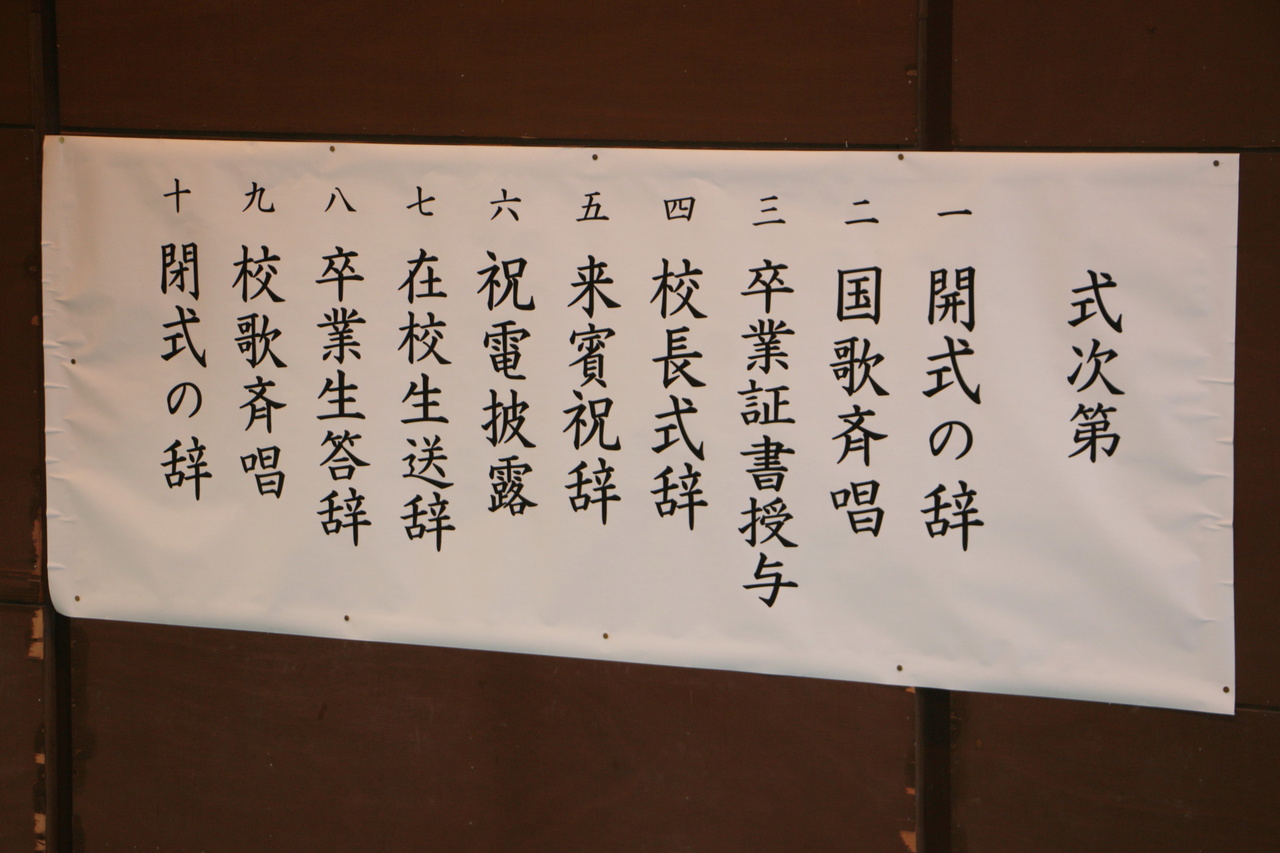 式次第
一 開式の辞
二 国歌斉唱
三 卒業証書授与
四 校長式辞
五 来賓祝辞
六 祝電披露
七 在校生送辞
八 卒業生答辞
九 校歌斉唱
十 閉式の辞